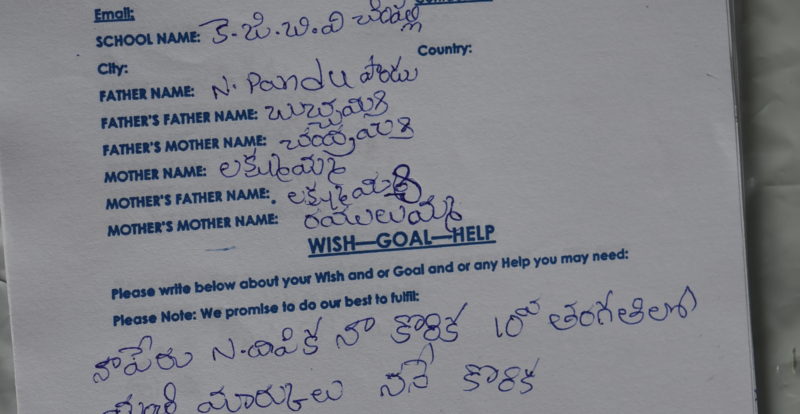 Email:
SCHOOL NAME: కె.జి.బి.వి
City: Country:
FATHER NAME: N. Pandu పాండు
FATHER'S FATHER NAME: బుచ్చయ్య
FATHER'S MOTHER NAME:
MOTHER NAME: లక్ష్మమ్మ
MOTHER'S FATHER NAME:
MOTHER'S MOTHER NAME: రాములమ్మ
WISH—GOAL—HELP
Please write below about your Wish and or Goal and or any Help you may need:
Please Note: We promise to do our best to fulfil:
నాపేరు N. దీపిక నా కోరిక 10 తరగతిలో
మార్కులు నానే కోరిక